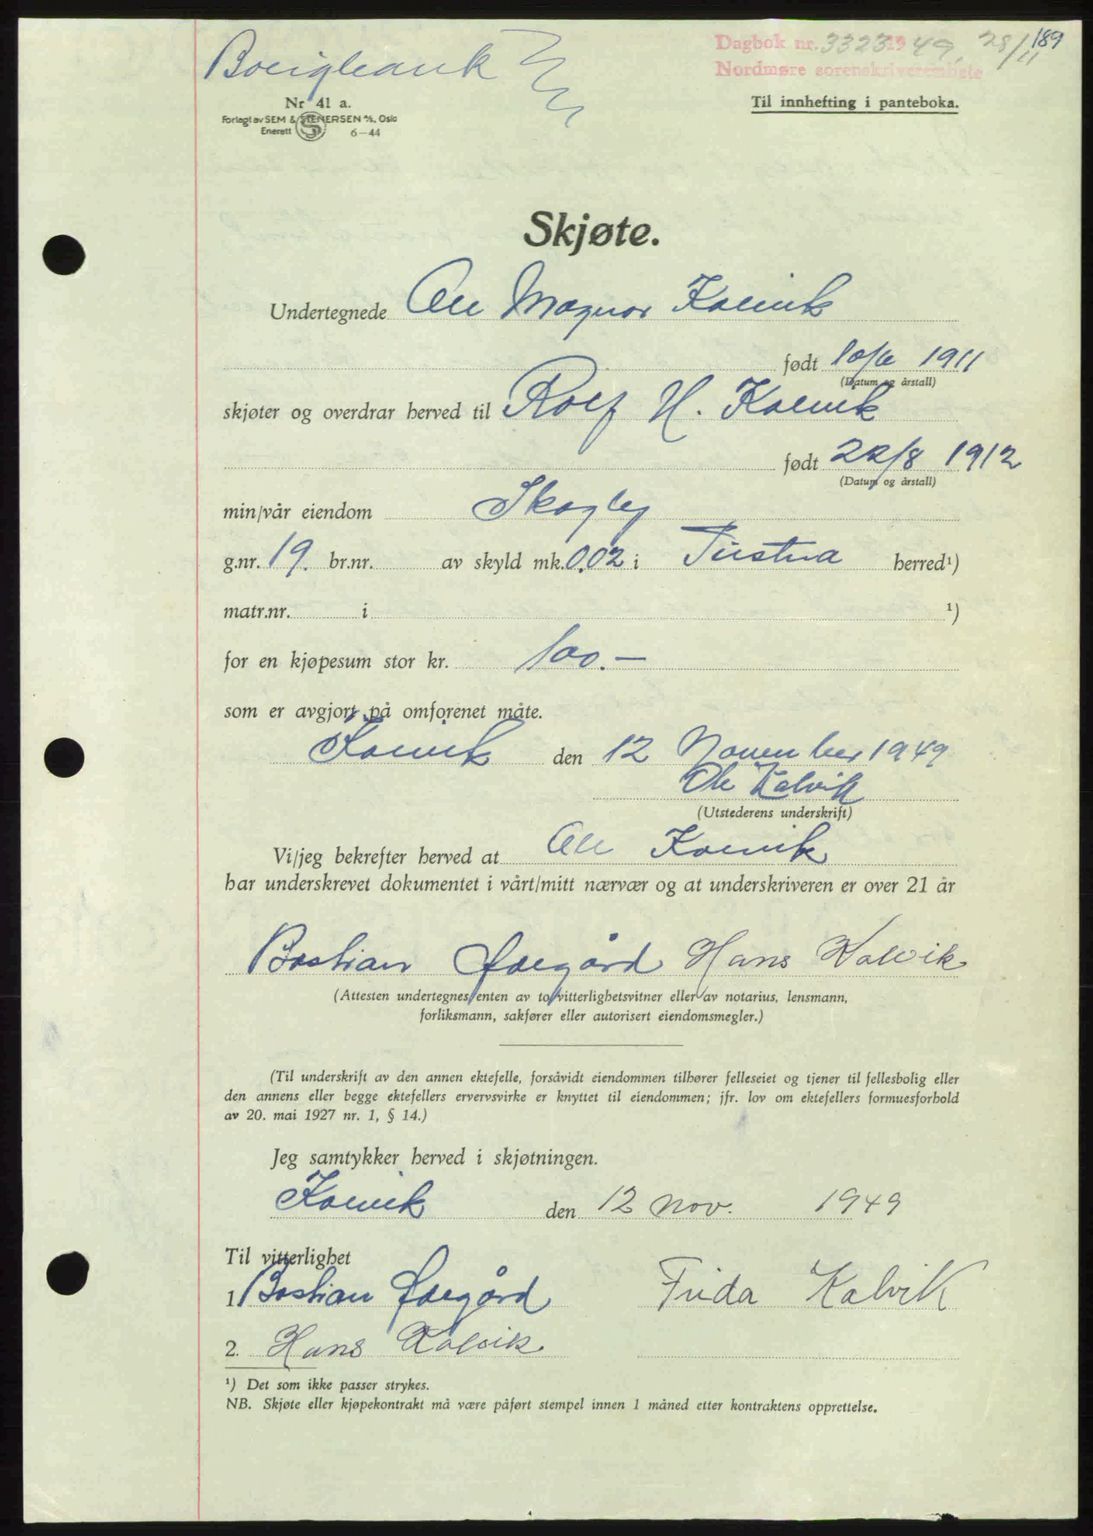 Dagbok nr. 3323 1949, 28/11 189
Nordmøre sorenskriverembete
Nr 41 a.
Forlagt av SEM & STENERSEN A/S, Oslo
Enerett 6-44
Til innhefting i panteboka.
Skjøte.
Undertegnede Ole Magnar Kalvik
født 10/6 1911
(Datum og årstall)
skjøter og overdrar herved til Rolf H. Kalvik
født 22/8 1912
(Datum og årstall)
min/vår eiendom Skogly
g.nr. 19. br.nr. av skyld mk. 0.02 i Tustna herred¹)
matr.nr. i ¹)
for en kjøpesum stor kr. 100.—
som er avgjort på omforenet måte.
Kalvik den 12 November 1949
Ole Kalvik
(Utstederens underskrift)
Vi/jeg bekrefter herved at Ole Kalvik
har underskrevet dokumentet i vårt/mitt nærvær og at underskriveren er over 21 år
Bastian Ødegård Hans Kalvik
(Attesten undertegnes enten av to vitterlighetsvitner eller av notarius, lensmann,
forliksmann, sakfører eller autorisert eiendomsmegler.)
(Til underskrift av den annen ektefelle, forsåvidt eiendommen tilhører felleseiet og tjener til fellesbolig eller
den annens eller begge ektefellers ervervsvirke er knyttet til eiendommen; jfr. lov om ektefellers formuesforhold
av 20. mai 1927 nr. 1, § 14.)
Jeg samtykker herved i skjøtningen.
Kalvik den 12 nov. 1949
Til vitterlighet
1. Bastian Ødegård Frida Kalvik
2. Hans Kalvik
¹) Det som ikke passer strykes.
NB. Skjøte eller kjøpekontrakt må være påført stempel innen 1 måned etter kontraktens opprettelse.